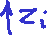 ↑z_i